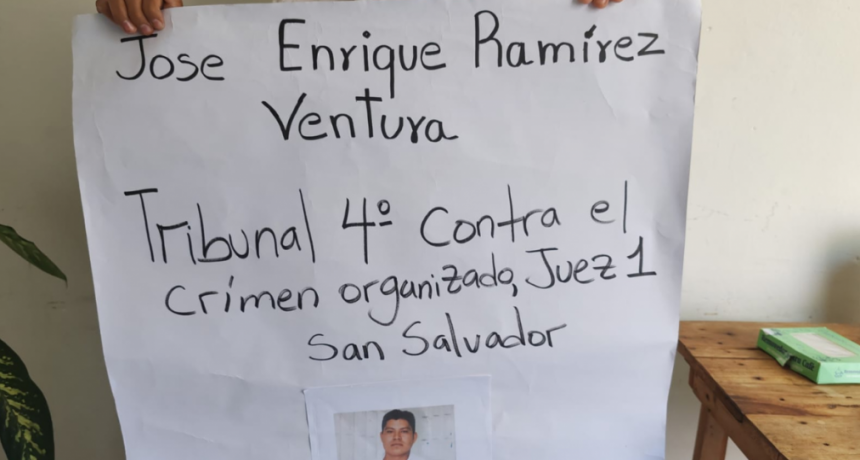 Jose Enrique Ramírez
Ventura
Tribunal 4º Contra el
Crimen organizado, Juez 1
San Salvador